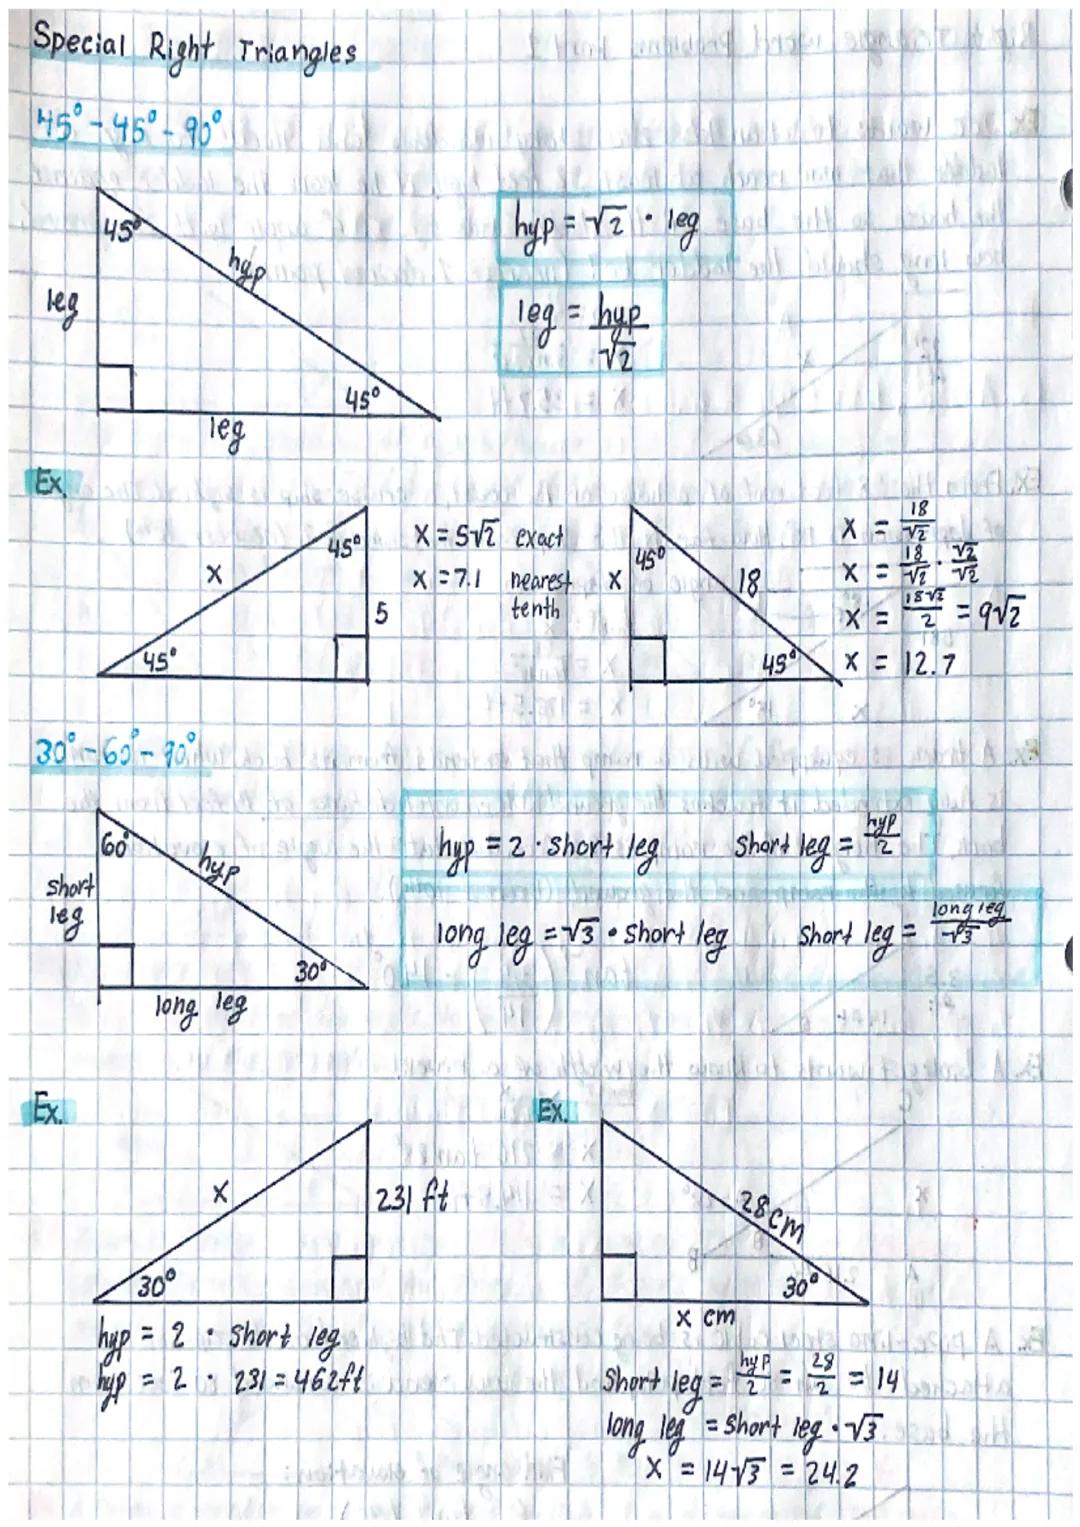 Special Right Triangles
45° - 45° - 90°
45°
hyp
leg
45°
leg
hyp = √2 · leg
leg = hyp/√2
Ex.
45°
x
5
45°
x = 5√2 exact
x = 7.1 nearest
tenth
45°
x
18
45°
x = 18/√2
x = 18/√2 · √2/√2
x = 18√2/2 = 9√2
x = 12.7
30° - 60° - 90°
60°
hyp
short
leg
30°
long leg
hyp = 2 · short leg short leg = hyp/2
long leg = √3 · short leg short leg = long leg/√3
Ex.
x
231 ft
30°
hyp = 2 · short leg
hyp = 2 · 231 = 462ft
Ex.
28cm
30°
x cm
short leg = hyp/2 = 28/2 = 14
long leg = short leg · √3
x = 14√3 = 24.2